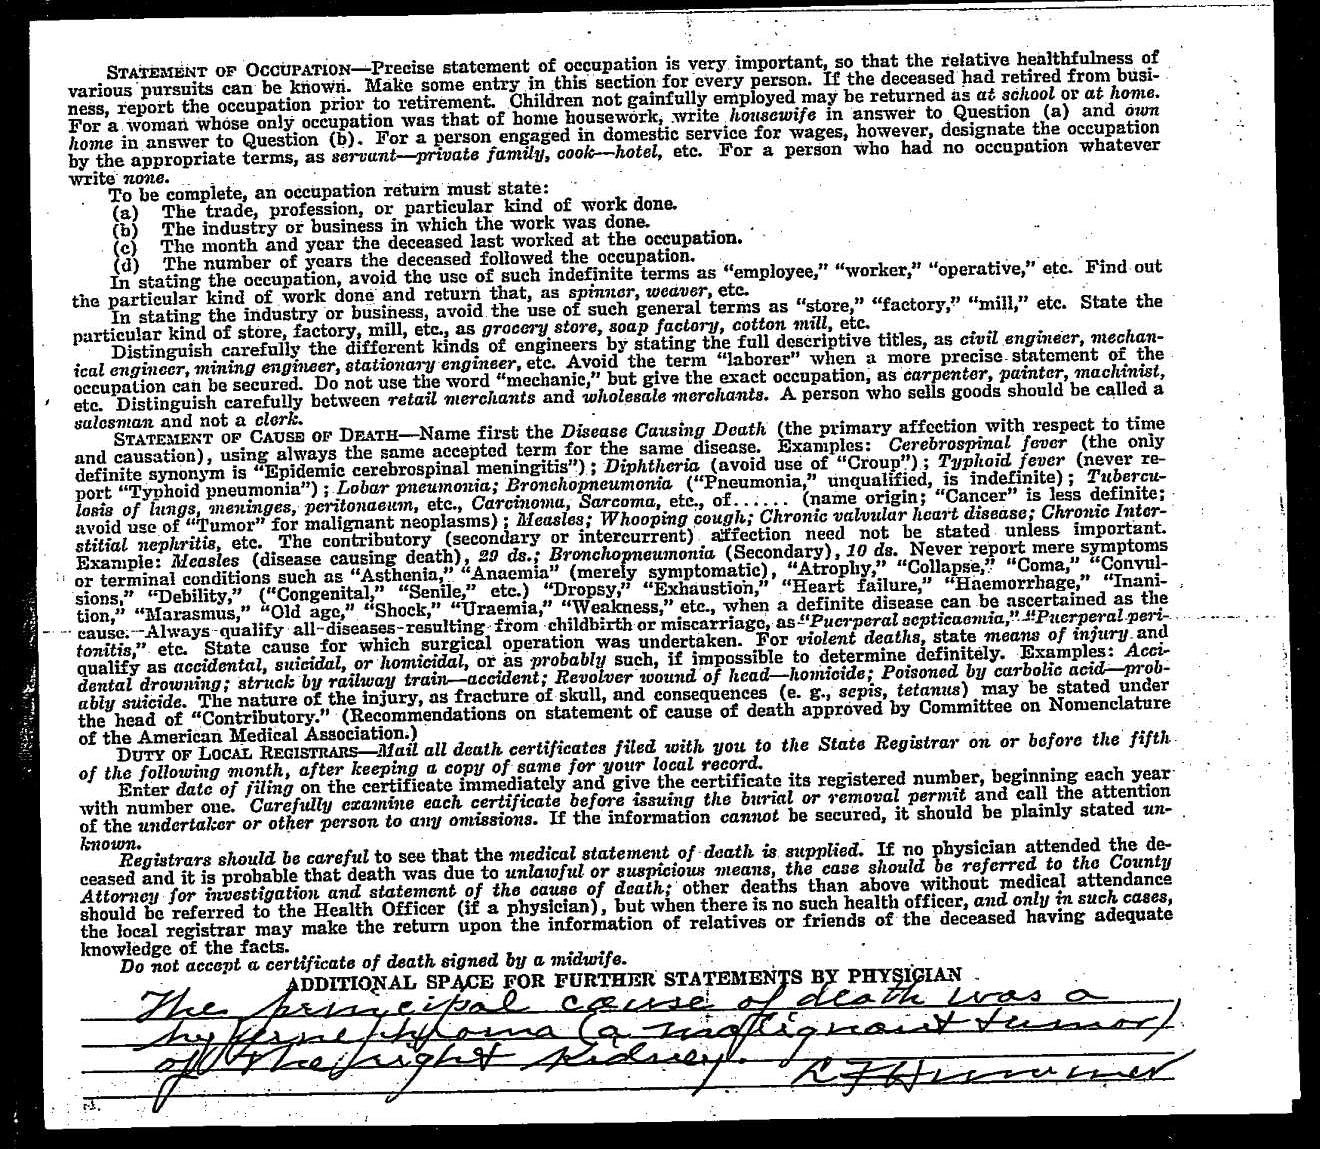 STATEMENT OF OCCUPATION—Precise statement of occupation is very important, so that the relative healthfulness of
various pursuits can be known. Make some entry in this section for every person. If the deceased had retired from busi-
ness, report the occupation prior to retirement. Children not gainfully employed may be returned as at school or at home.
For a woman whose only occupation was that of home housework, write housewife in answer to Question (a) and own
home in answer to Question (b). For a person engaged in domestic service for wages, however, designate the occupation
by the appropriate terms, as servant—private family, cook—hotel, etc. For a person who had no occupation whatever
write none.
To be complete, an occupation return must state:
(a) The trade, profession, or particular kind of work done.
(b) The industry or business in which the work was done.
(c) The month and year the deceased last worked at the occupation.
(d) The number of years the deceased followed the occupation.
In stating the occupation, avoid the use of such indefinite terms as "employee," "worker," "operative," etc. Find out
the particular kind of work done and return that, as spinner, weaver, etc.
In stating the industry or business, avoid the use of such general terms as "store," "factory," "mill," etc. State the
particular kind of store, factory, mill, etc., as grocery store, soap factory, cotton mill, etc.
Distinguish carefully the different kinds of engineers by stating the full descriptive titles, as civil engineer, mechan-
ical engineer, mining engineer, stationary engineer, etc. Avoid the term "laborer" when a more precise statement of the
occupation can be secured. Do not use the word "mechanic," but give the exact occupation, as carpenter, painter, machinist,
etc. Distinguish carefully between retail merchants and wholesale merchants. A person who sells goods should be called a
salesman and not a clerk.
STATEMENT OF CAUSE OF DEATH—Name first the Disease Causing Death (the primary affection with respect to time
and causation), using always the same accepted term for the same disease. Examples: Cerebrospinal fever (the only
definite synonym is "Epidemic cerebrospinal meningitis"); Diphtheria (avoid use of "Croup"); Typhoid fever (never re-
port "Typhoid pneumonia"); Lobar pneumonia; Bronchopneumonia ("Pneumonia," unqualified, is indefinite); Tubercu-
losis of lungs, meninges, peritonaeum, etc., Carcinoma, Sarcoma, etc., of...... (name origin; "Cancer" is less definite;
avoid use of "Tumor" for malignant neoplasms); Measles; Whooping cough; Chronic valvular heart disease; Chronic Inter-
stitial nephritis, etc. The contributory (secondary or intercurrent) affection need not be stated unless important.
Example: Measles (disease causing death), 29 ds.; Bronchopneumonia (Secondary), 10 ds. Never report mere symptoms
or terminal conditions such as "Asthenia," "Anaemia" (merely symptomatic), "Atrophy," "Collapse," "Coma," "Convul-
sions," "Debility," ("Congenital," "Senile," etc.) "Dropsy," "Exhaustion," "Heart failure," "Haemorrhage," "Inani-
tion," "Marasmus," "Old age," "Shock," "Uraemia," "Weakness," etc., when a definite disease can be ascertained as the
cause. Always qualify all diseases resulting from childbirth or miscarriage, as "Puerperal septicaemia," "Puerperal peri-
tonitis," etc. State cause for which surgical operation was undertaken. For violent deaths, state means of injury and
qualify as accidental, suicidal, or homicidal, or as probably such, if impossible to determine definitely. Examples: Acci-
dental drowning; struck by railway train—accident; Revolver wound of head—homicide; Poisoned by carbolic acid—prob-
ably suicide. The nature of the injury, as fracture of skull, and consequences (e. g., sepis, tetanus) may be stated under
the head of "Contributory." (Recommendations on statement of cause of death approved by Committee on Nomenclature
of the American Medical Association.)
DUTY OF LOCAL REGISTRARS—Mail all death certificates filed with you to the State Registrar on or before the fifth
of the following month, after keeping a copy of same for your local record.
Enter date of filing on the certificate immediately and give the certificate its registered number, beginning each year
with number one. Carefully examine each certificate before issuing the burial or removal permit and call the attention
of the undertaker or other person to any omissions. If the information cannot be secured, it should be plainly stated un-
known.
Registrars should be careful to see that the medical statement of death is supplied. If no physician attended the de-
ceased and it is probable that death was due to unlawful or suspicious means, the case should be referred to the County
Attorney for investigation and statement of the cause of death; other deaths than above without medical attendance
should be referred to the Health Officer (if a physician), but when there is no such health officer, and only in such cases,
the local registrar may make the return upon the information of relatives or friends of the deceased having adequate
knowledge of the facts.
Do not accept a certificate of death signed by a midwife.
ADDITIONAL SPACE FOR FURTHER STATEMENTS BY PHYSICIAN
The principal cause of death was a
hypernephroma (a malignant tumor)
of the right kidney.